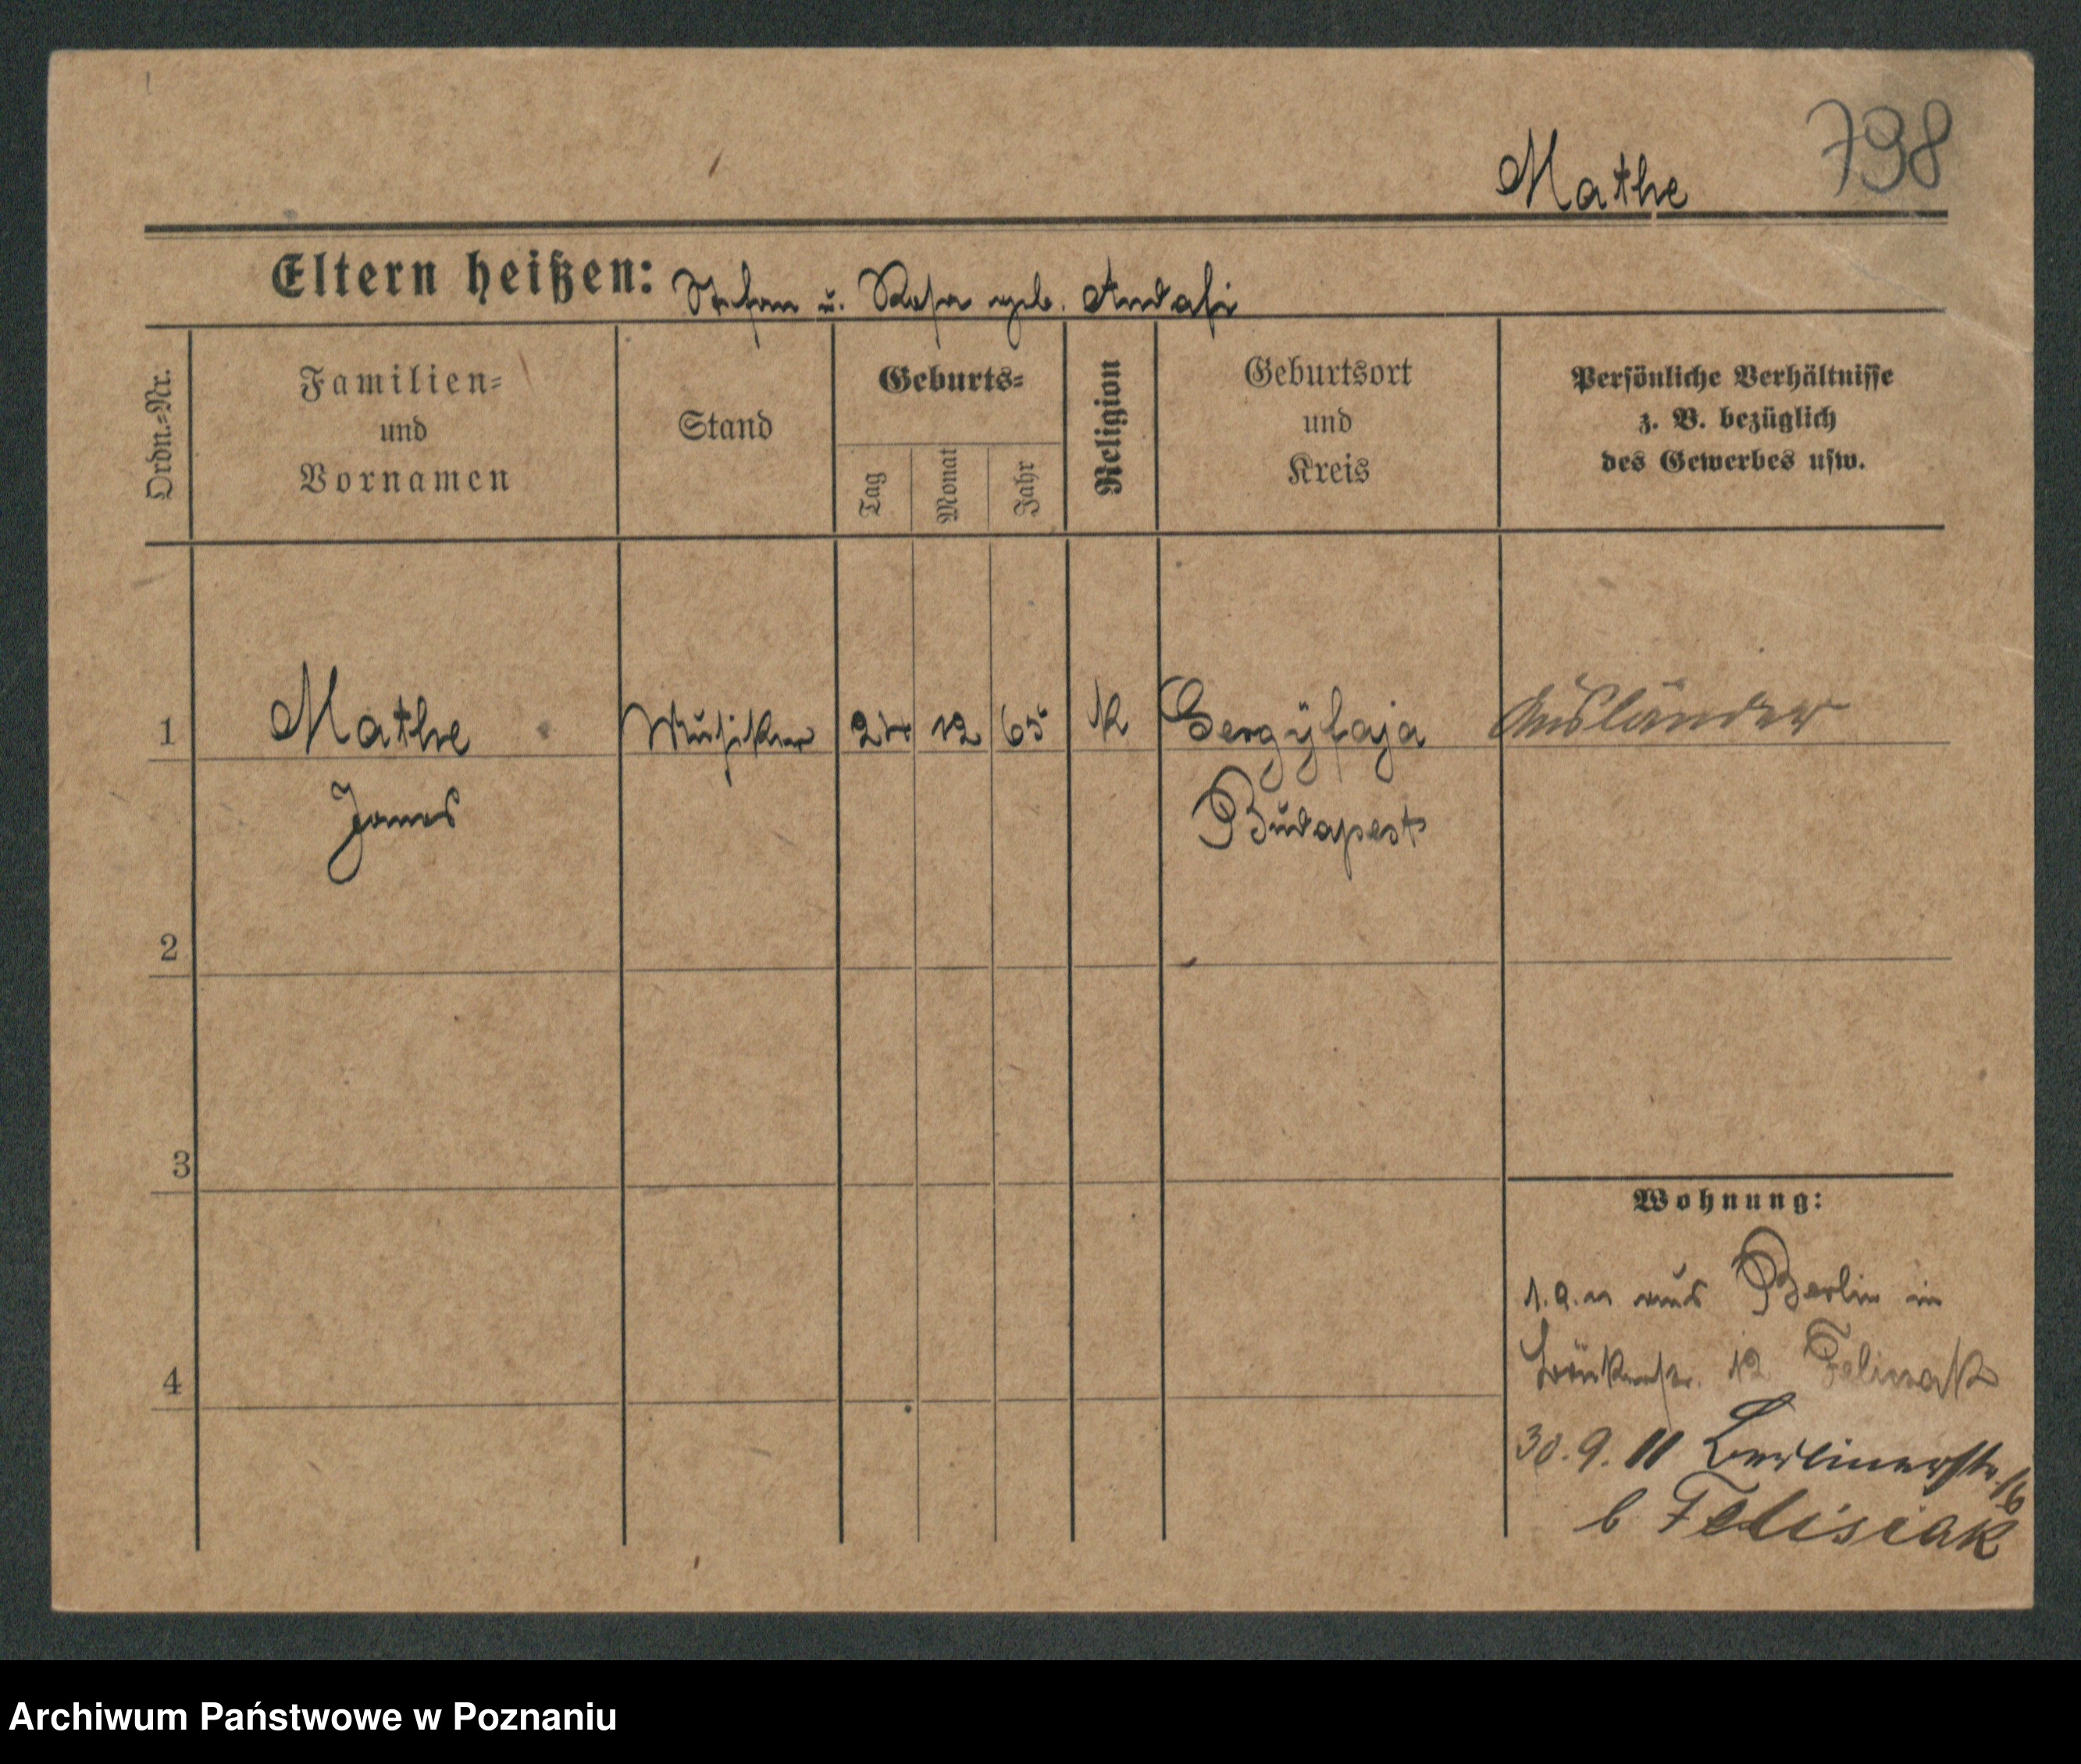 Mathe 798
Eltern heißen: Stefan u. Rosa geb. Andasi
Ordn.=Nr.
Familien=
und
Vornamen
Stand
Geburts=
Tag Monat Jahr
Religion
Geburtsort
und
Kreis
Persönliche Verhältnisse
z. B. bezüglich
des Gewerbes usw.
1 Mathe Musiker 24 12 65 K Ausländer
Janos Budapest
2
3
Wohnung:
1.9.11 aus Berlin in
12 Felisiak
4
30.9.11 Berlinerstr. 16
b Felisiak
Archiwum Państwowe w Poznaniu